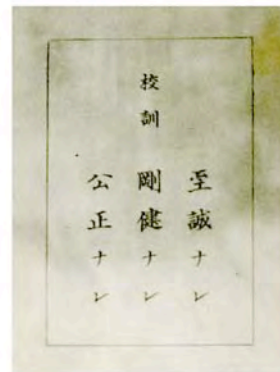 校訓
至誠ナレ
剛健ナレ
公正ナレ